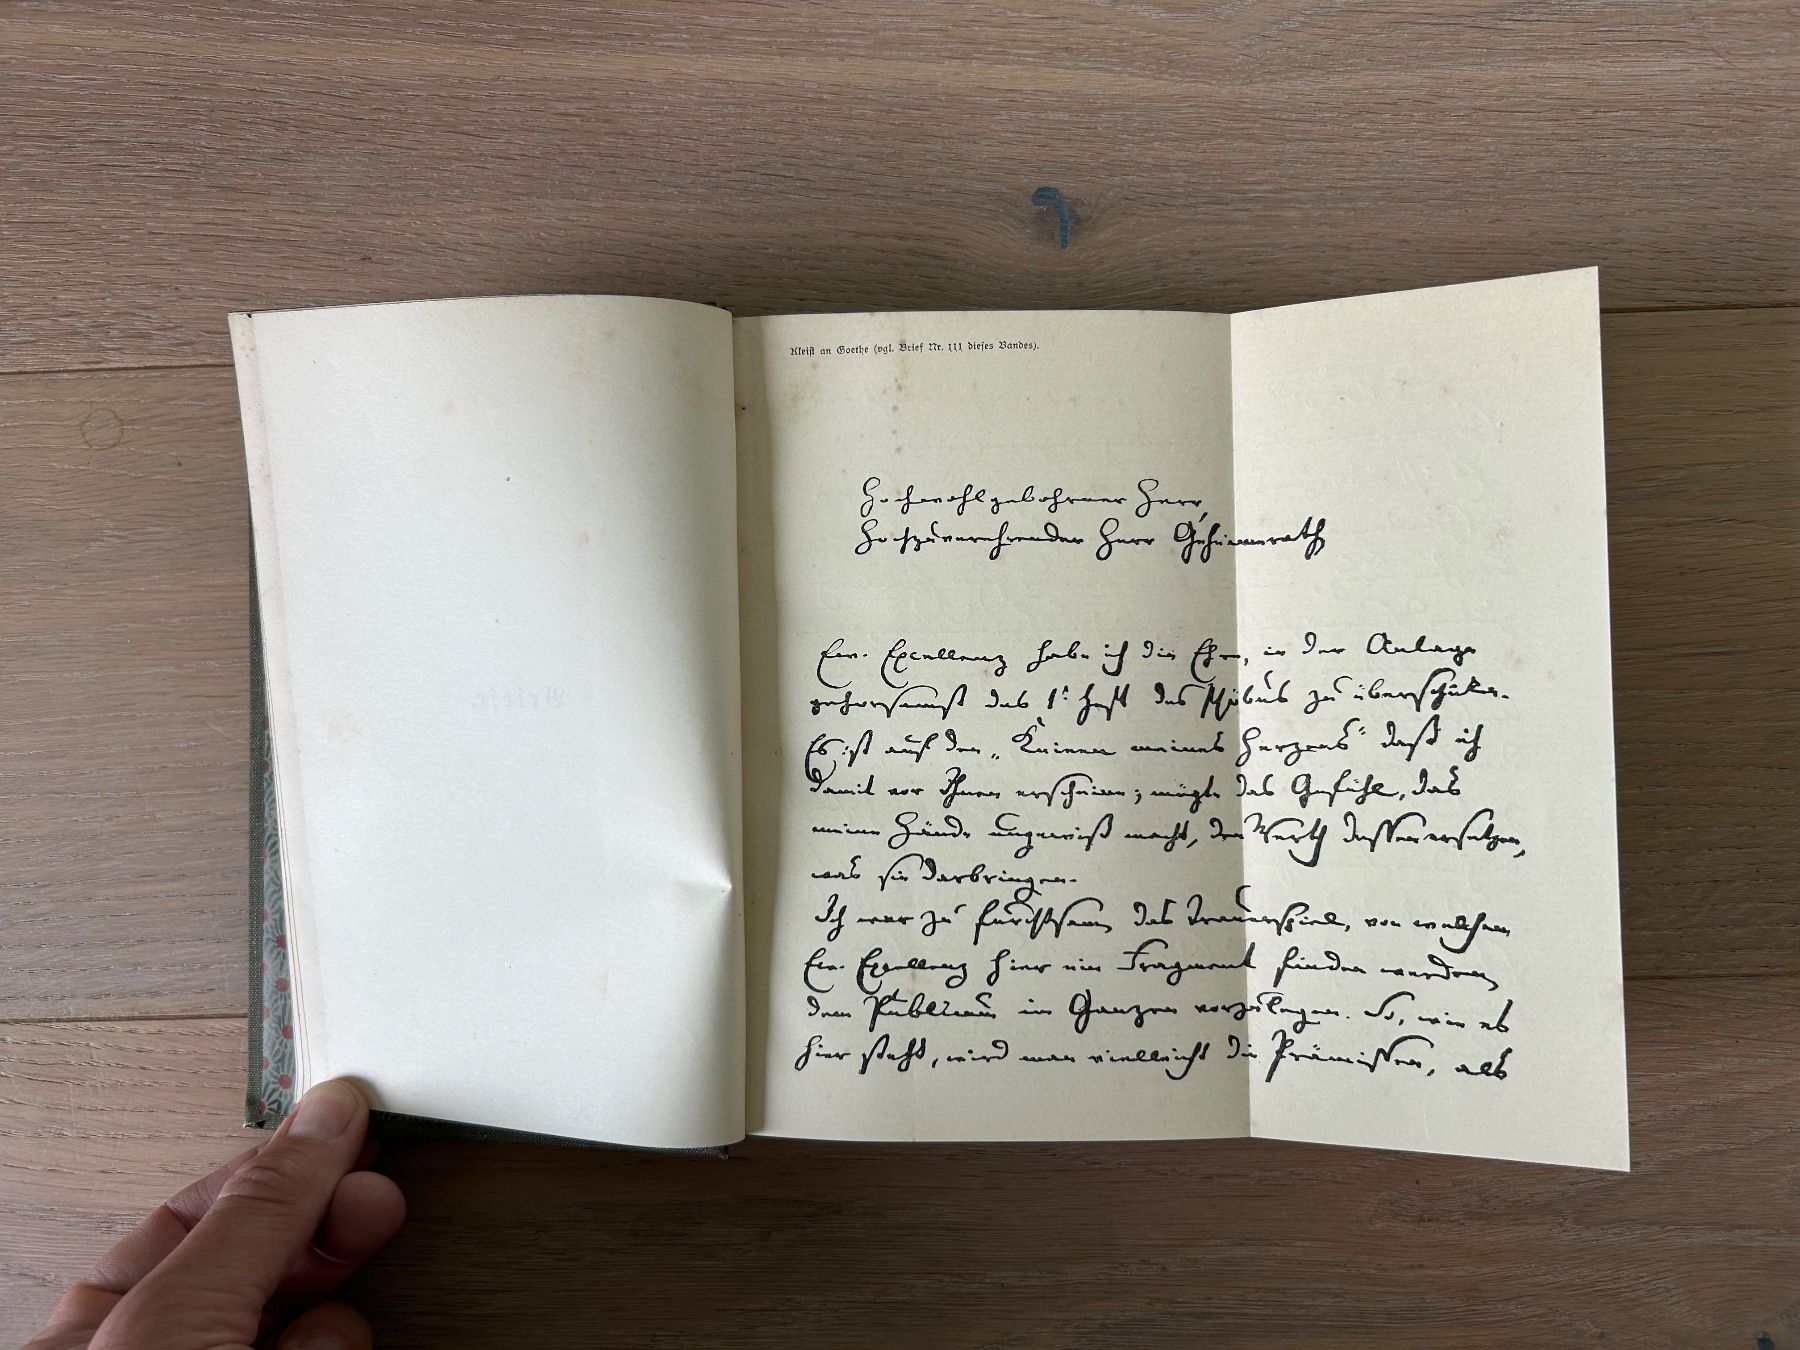 Kleist an Goethe (vgl. Brief Nr. 111 dieses Bandes).
Hochwohlgebohrner Herr,
Hochzuverehrender Herr Geheimerath,
Ew. Excellenz habe ich die Ehre, in der Anlage
gehorsamst das 1t Heft des Phöbus zu überschicken.
Es ist auf den „Knieen meines Herzens“ daß ich
damit vor Ihnen erscheine; mögte das Gefühl, das
meine Hände ungewiß macht, den Werth dessen ersetzen,
was sie darbringen.
Ich war zu furchtsam, das Trauerspiel, von welchem
Ew. Excellenz hier ein Fragment finden werden,
dem Publicum im Ganzen vorzulegen. So, wie es
hier steht, wird man vielleicht die Prämissen, als
Briefe